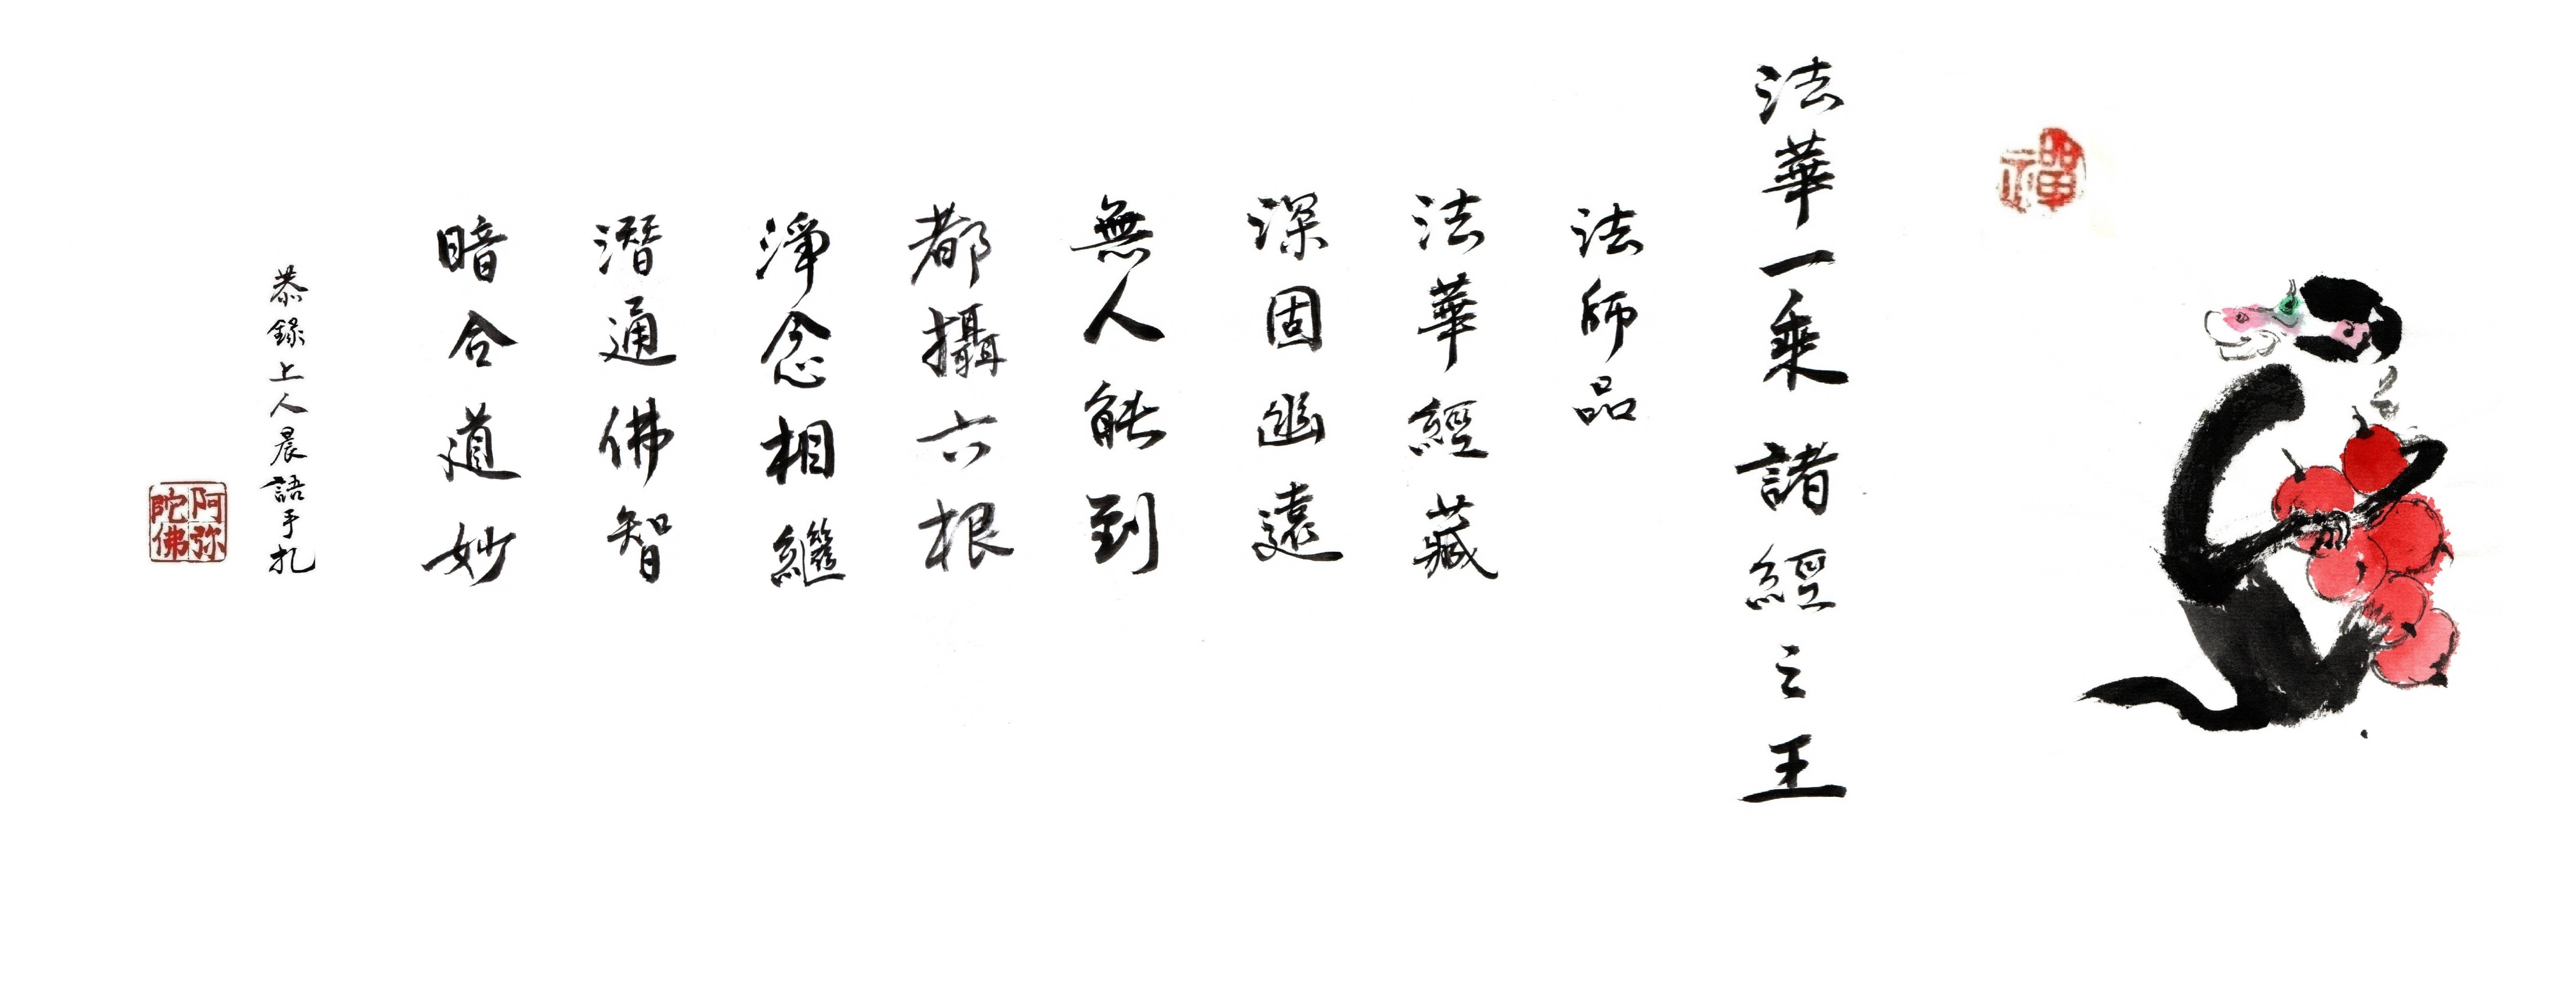 禪
法華一乘諸經之王
法師品
法華經藏
深固幽遠
無人能到
都攝六根
淨念相繼
潛通佛智
暗合道妙
恭錄上人晨語手札
阿弥陀佛